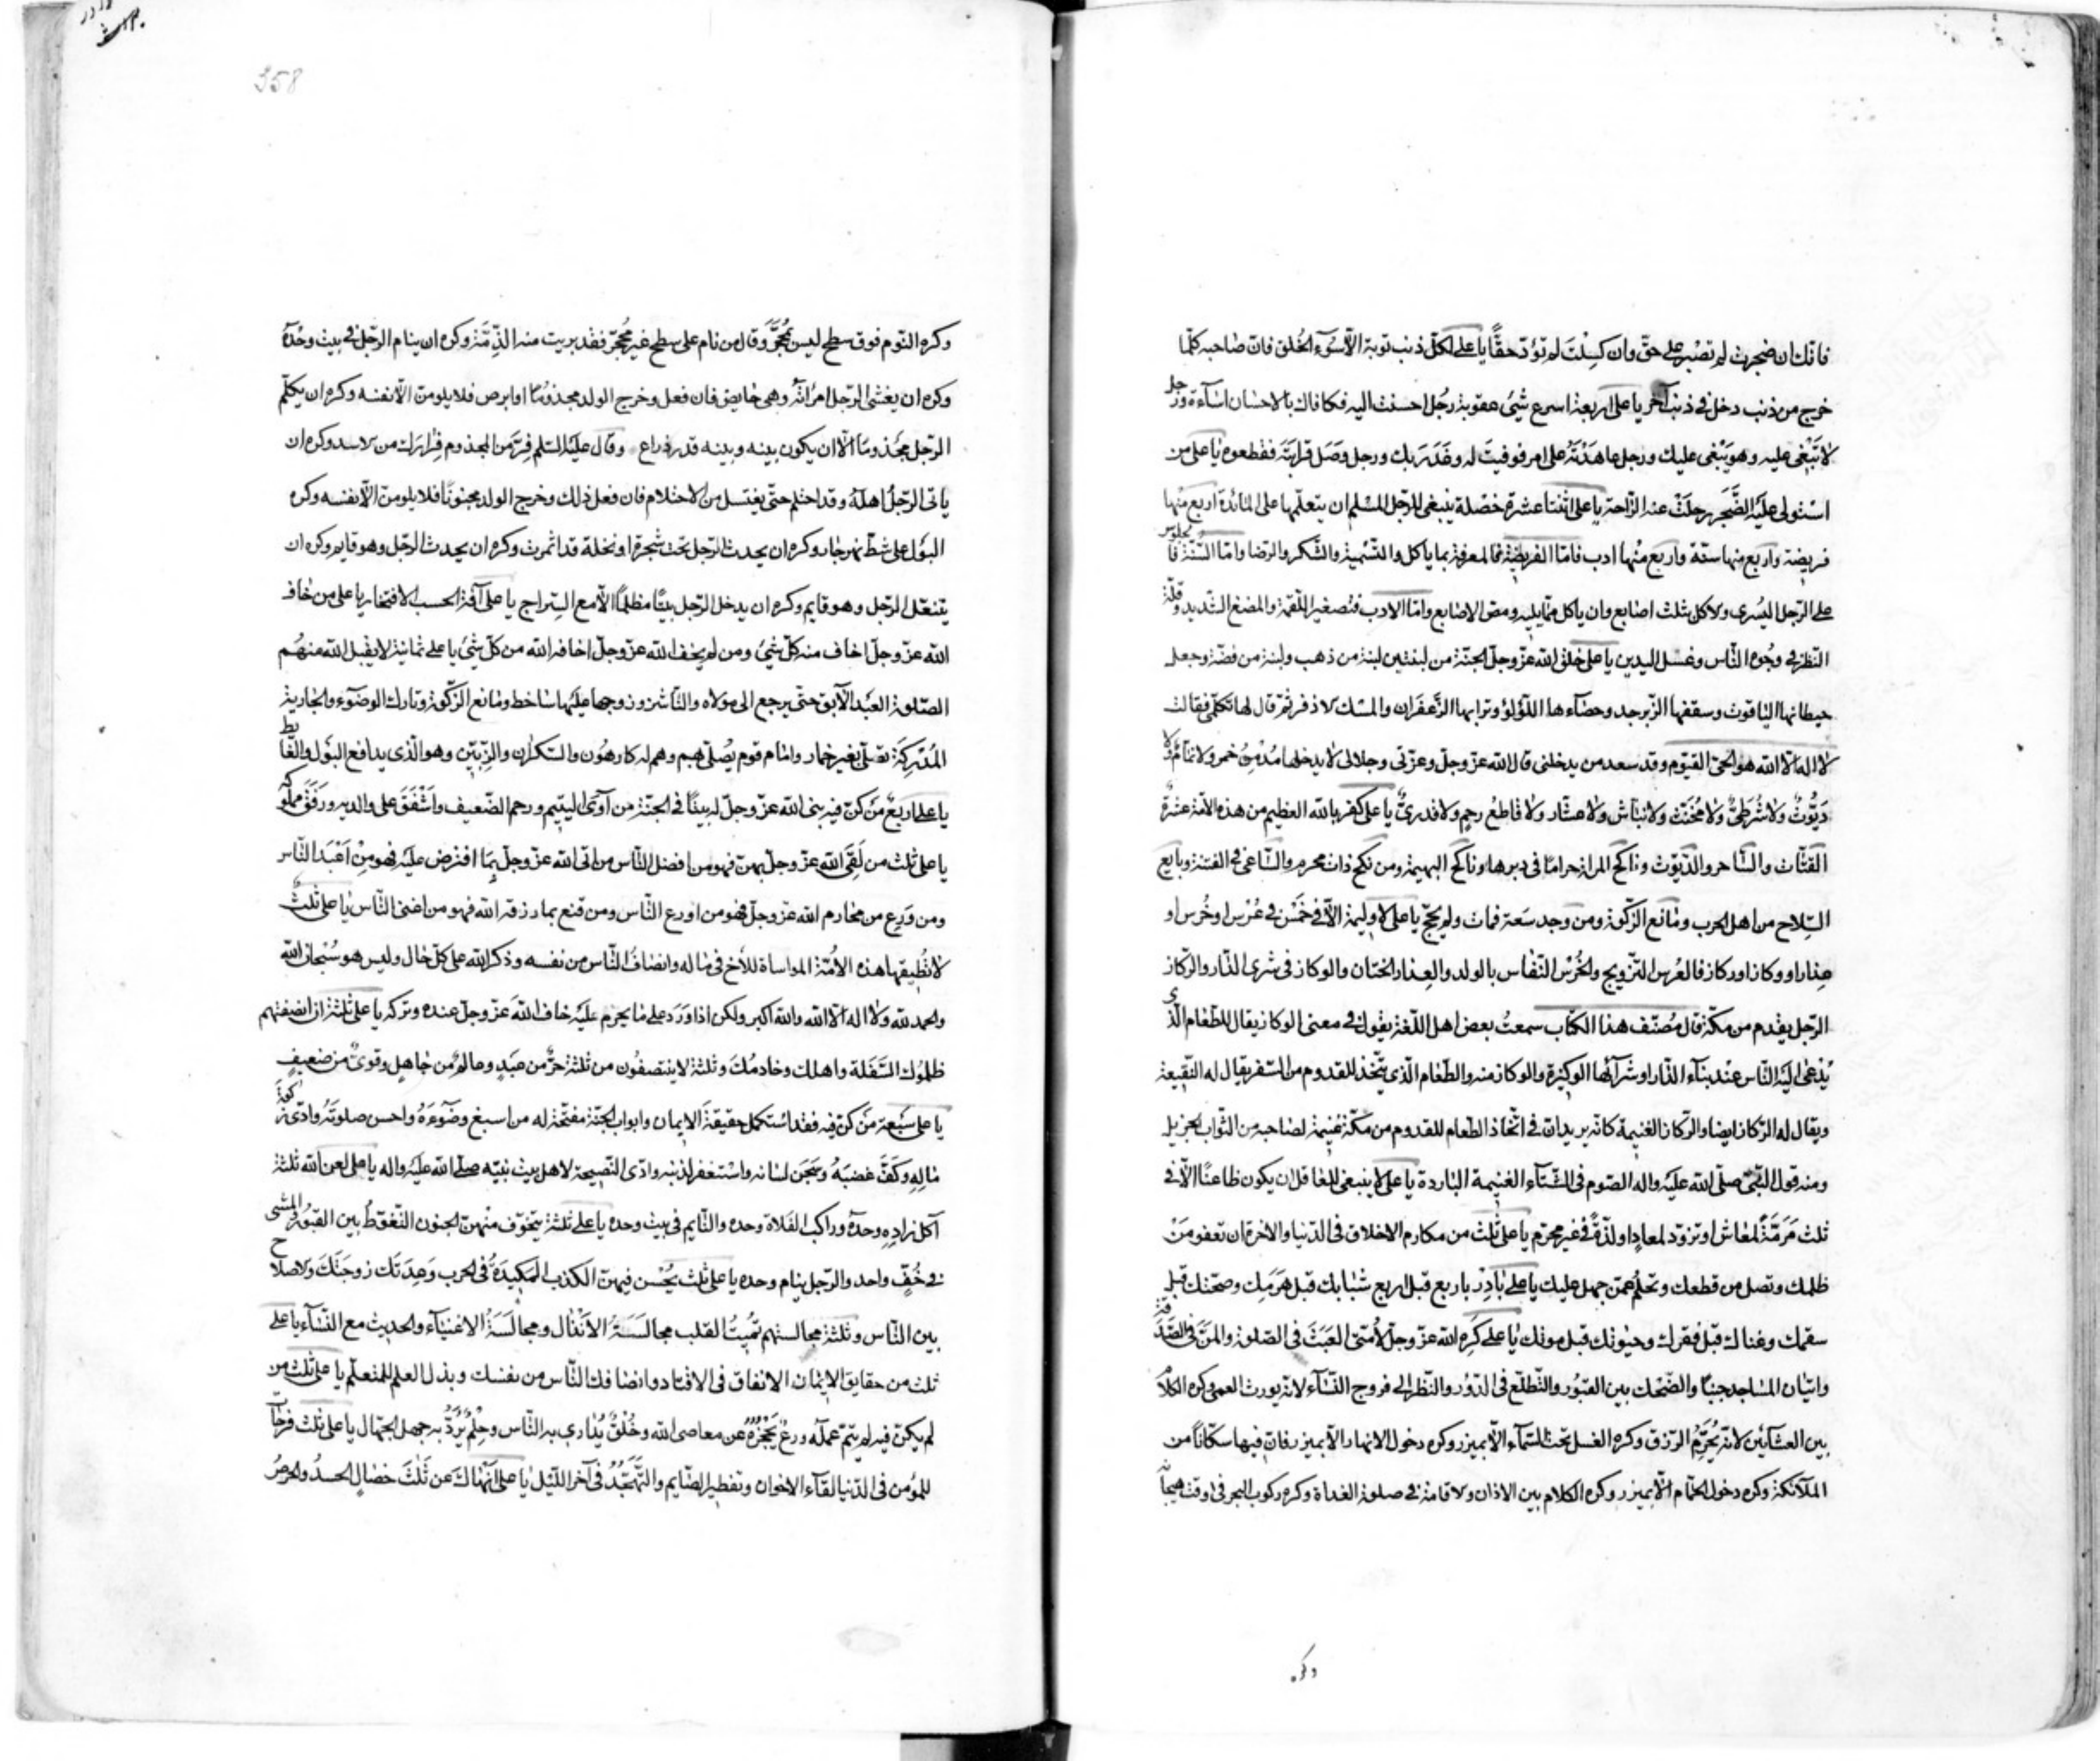 فانّك ان ضجرت لم تصبر على حقّ وان كسِلتَ لم تؤدّ حقًّا يا على لكلّ ذنب توبة الّا سُوء الخُلق فانّ صاحبه كلّما
خرج من ذنب دخل فى ذنب آخر يا على اربعة اسرع شئ عقوبة رجُل احسنت اليه فكافاك بالاحسان اساءة ورجل
لا تبغى عليه وهو يبغى عليك ورجل عاهدته على امر فوفيتَ له وغَدَر بك ورجل وصَل قرابته فقطعوه يا على من
استولى عليه الضَّجَر رحلَت عنه الرّاحة يا على اثنتا عشرة خصلة ينبغى للرّجل المسلم ان يتعلّمها على المائدة اربع منها
فريضة واربع منها سنّة واربع منها ادب فامّا الفريضة فالمعرفة بما ياكل والتّسمية والشّكر والرّضا وامّا السّنّة فالجلوس
على الرّجل اليُسرى والاكل بثلث اصابع وان ياكل ممّا يليه ومصّ الاصابع وامّا الادب فتصغير اللّقمة والمضغ الشّديد وقلّة
النّظر فى وجُوه النّاس وغسل اليدين يا على خلق الله عزّ وجلّ الجنّة من لبنتين لبنة من ذهب ولبنة من فضّة وجعل
حيطانها الياقوت وسقفها الزّبرجد وحصاءها اللّؤلؤ وترابها الزّعفران والمسك الاذفر ثمّ قال لها تكلّمى فقالت
لا اله الّا الله هو الحىّ القيّوم وقد سعد من يدخلنى قال الله عزّ وجلّ وعزّتى وجلالى لا يدخلها مُدمِنُ خمر ولا نمّامٌ ولا
دَيّوثٌ ولا شُرطىٌّ ولا مُخنّث ولا نبّاش ولا عشّار ولا قاطعُ رحِمٍ ولا قدرىٌّ يا على كفر بالله العظيم من هذه الامّة عشرةٌ
القتّات والسّاحر والدّيّوث وناكح المراة حرامًا فى دبرها وناكح البهيمة ومن نكح ذات محرم والسّاعى فى الفتنة وبايع
السّلاح من اهل الحرب ومانع الزّكوة ومن وجد سَعة فمات ولم يحجّ يا على لا وليمة الّا فى خَمس فى عُرس او خُرس او
عِذار او وكاز او ركاز فالعُرس التّزويج والخُرس النّفاس بالولد والعِذار الختان والوكاز فى شرى الدّار والرّكاز
الرّجل يقدم من مكّة قال مُصنّف هذا الكتاب سمعتُ بعض اهل اللّغة يقول فى معنى الوكاز يقال للطّعام الّذى
يُدعى اليه النّاس عند بناء الدّار او شرآئها الوكيزة والوكاز منه والطّعام الّذى يتّخذ للقدوم من السّفر يقال له النّقيعة
ويقال له الرّكاز ايضا والرّكاز الغنيمة كانّه يريد انّ فى اتّخاذ الطّعام للقدوم من مكّة غنيمة لصاحبه من الثّواب الجزيل
ومنه قول النّبىّ صلّى الله عليه واله الصّوم فى الشّتآء الغنيمة الباردة يا على لا ينبغى للعاقل ان يكون ظاعنًا الّا فى
ثلث مَرَمّةٍ لمعاش او تزوّد لمعادٍ او لذّةٍ فى غير محرّم يا على ثلث من مكارم الاخلاق فى الدّنيا والاخرة ان تعفو عمّن
ظلمك وتصل من قطعك وتحلُم عمّن جهل عليك يا على بادِر باربع قبل اربع شبابك قبل هَرَمِك وصحّتك قبل
سقمك وغناك قبل فقرك وحيوتك قبل موتك يا على كَرِه الله عزّ وجلّ لأمّتى العَبَثَ فى الصّلوة والمنَّ فى الصّدقة
واتيان المساجد جنبًا والضّحك بين القبُور والتّطلّع فى الدّوُر والنّظر الى فروج النّسآء لانّه يورث العمى وكره الكلام
بين العشآئين لانّه يُحرّم الرّزق وكره الغسل تحت السّمآء الّا بميزر وكره دخول الانهار الّا بميزر فانّ فيها سكّانًا من
الملآئكة وكره دخول الحمّام الّا بميزر وكره الكلام بين الاذان والاقامة فى صلوة الغداة وكره ركوب البحر فى وقت هيجانه
وكره
358
وكره النّوم فوق سطح ليس بمُحجّر وقال من نام على سطح غير مُحجّر فقد بريت منه الذِّمّة وكره ان ينام الرّجل فى بيت وحدَه
وكره ان يغشى الرّجل امراته وهى حايض فان فعل وخرج الولد مجذومًا او ابرص فلا يلومنّ الّا نفسه وكره ان يكلّم
الرّجل مجذومًا الّا ان يكون بينه وبينه قدر ذراع وقال عليه السّلم فِرّ من المجذوم فِرارَك من الاسد وكره ان
ياتى الرّجلُ اهلَهُ وقد احتلم حتّى يغتسل من الاحتلام فان فعل ذلك وخرج الولد مجنونًا فلا يلومنّ الّا نفسه وكره
البَول على شطّ نهر جار وكره ان يحدث الرّجل تحت شجرة او نخلة قد اثمرت وكره ان يحدث الرّجل وهو قايم وكره ان
يتنعّل الرّجل وهو قايم وكره ان يدخل الرّجل بيتًا مظلمًا الّا مع السّراج يا على آفة الحسب الافتخار يا على من خاف
الله عزّ وجلّ اخاف منه كلّ شئ ومن لم يخف الله عزّ وجلّ اخافه الله من كلّ شئ يا على ثمانية لا يقبل الله منهم
الصّلوة العَبد الآبق حتّى يرجع الى مولاه والنّاشز وزوجها عليها ساخط ومانع الزّكوة وتارك الوضوء والجارية
المُدرِكة تصلّى بغير خمار وامام قوم يُصلّى بهم وهم له كارهُون والسّكران والزِّبّين وهو الّذى يدافع البَول والغايط
يا على اربعٌ مَن كنّ فيه بنى الله عزّ وجلّ له بيتًا فى الجنّة من آوى اليتيم ورحم الضّعيف واشفق على والديه ورَفَق بمملوكه
يا على ثلث من لقى الله عزّ وجلّ بهنّ فهو من افضل النّاس من اتى الله عزّ وجلّ بِما افترض عليه فهو مِن اَعبَد النّاس
ومن وَرِع من محارم الله عزّ وجلّ فهو من اورع النّاس ومن قنع بما رزقه الله فهو من اغنى النّاس يا على ثلثٌ
لا تُطيقها هذه الأمّة المواساة للاَخ فى ماله وانصافُ النّاس من نفسه وذكر الله على كلّ حال وليس هو سُبحان الله
والحمد لله ولا اله الّا الله والله اكبر ولكن اذا وَرَدَ على ما يحرم عليه خاف الله عزّ وجلّ عنده وتركه يا على ثلثة ان انصفتهم
ظلموك السّفَلة واهلك وخادمُك وثلثة لا ينتصفُون من ثلثة حرٌّ من عَبدٍ وعالمٌ من جاهلٍ وقوىٌّ من ضعيفٍ
يا على سَبعة مَن كنّ فيه فقد استكمل حقيقةَ الايمان وابواب الجنّة مفتّحة له من اسبغ وضوءَهُ واحسن صلوتَه وادّى زكوة
مالِه وكفّ غضبَهُ وسَجَن لسانه واستغفر لذنبه وادّى النّصيحة لاهل بيت نبيّه صلّى الله عليه واله يا على لعن الله ثلثة
آكل زادِهِ وحدَهُ وراكب الفَلاة وحده والنّايم فى بيت وحده يا على ثلثة يتخوّف منهنّ الجنون التّغوّطُ بين القبُور والمشى
فى خُفٍّ واحد والرّجل ينام وحده يا على ثلث يَحسُن فيهنّ الكذب المكيدَةُ فى الحرب وعِدَتُك زوجتَكَ والاصلاح
بين النّاس وثلثة مجالستهم تُميتُ القلب مجالسَةُ الاَنذال ومجالَسَةُ الاغنيآء والحديث مع النّسآء يا على
ثلث من حقايق الايمان الانفاق فى الاقتار وانصافك النّاس من نفسك وبذل العلم للمتعلّم يا على ثلث من
لم يكنّ فيه لم يتمّ عملُه ورعٌ يَحجُزُه عن معاصى الله وخُلقٌ يُدارى به النّاس وحِلمٌ يُردّ به جهل الجهّال يا على ثلث فرحات
للمؤمن فى الدّنيا لقآء الاخوان وتفطير الصّايم والتّهجّدُ فى آخر اللّيل يا على اَنهاكَ عن ثَلث خصالٍ الحسدُ والحرصُ